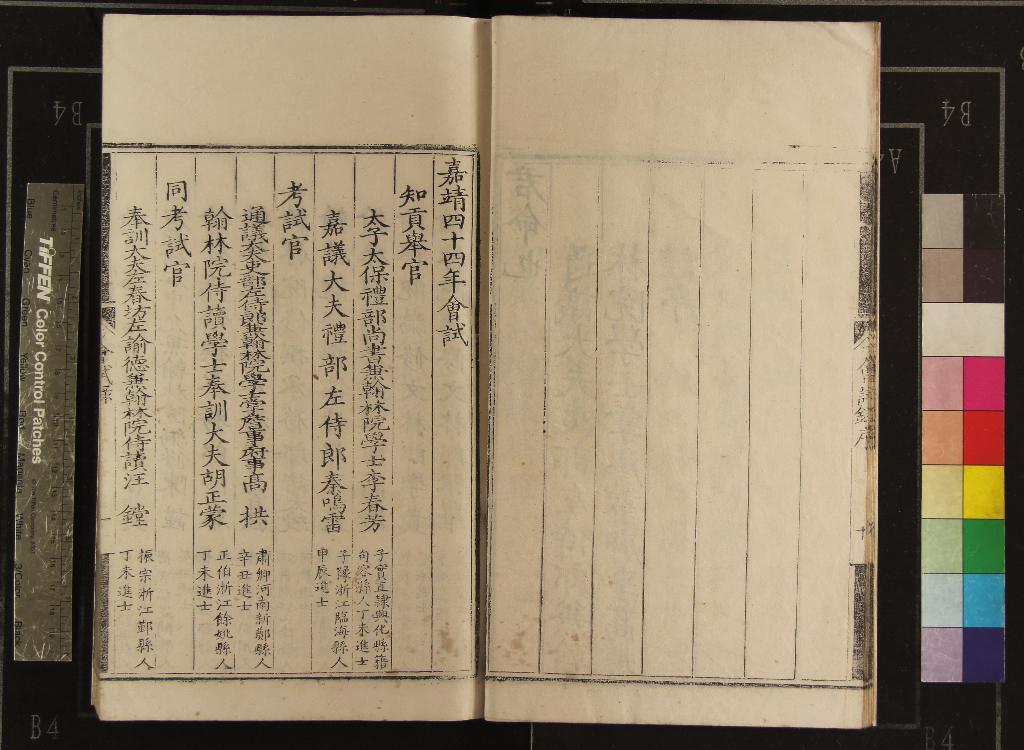 嘉靖四十四年會試
知貢舉官
太子太保禮部尚書兼翰林院學士李春芳
子實直隷興化縣籍
句容縣人丁未進士
嘉議大夫禮部左侍郎秦鳴雷
子豫浙江臨海縣人
甲辰進士
考試官
通議大夫吏部左侍郎兼翰林院學士掌詹事府事高 拱
肅卿河南新鄭縣人
辛丑進士
翰林院侍讀學士奉訓大夫胡正蒙
正伯浙江餘姚縣人
丁未進士
同考試官
奉訓大夫左春坊左諭德兼翰林院侍讀汪 鏜
振宗浙江鄞縣人
丁未進士
會試錄
一
會試錄序
十
君命也
B4
B4
B4
B4
A
TIFFEN Color Control Patches
Blue
Cyan
Green
Yellow
Red
Magenta
White
3/Color
Black